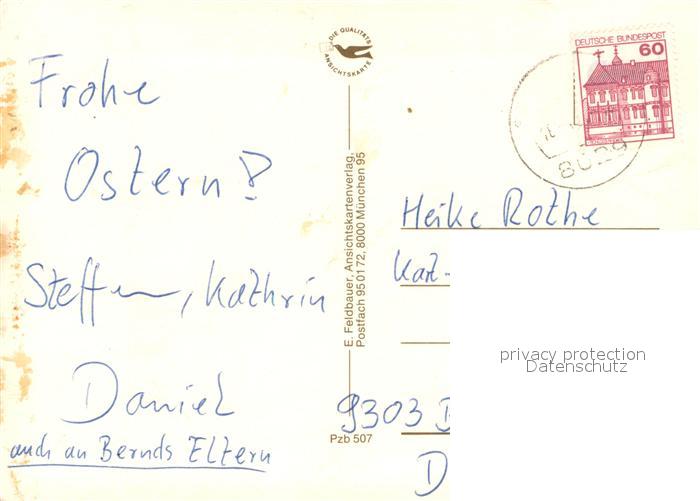 Frohe
Ostern!
Steffen, Kathrin
Daniel
auch an Bernds Eltern
DIE QUALITÄTS
ANSICHTSKARTE
E. Feldbauer, Ansichtskartenverlag,
Postfach 95 01 72, 8000 München 95
Pzb 507
DEUTSCHE BUNDESPOST
60
8029
Heike Rothe
Karl-
9303
D
privacy protection
Datenschutz